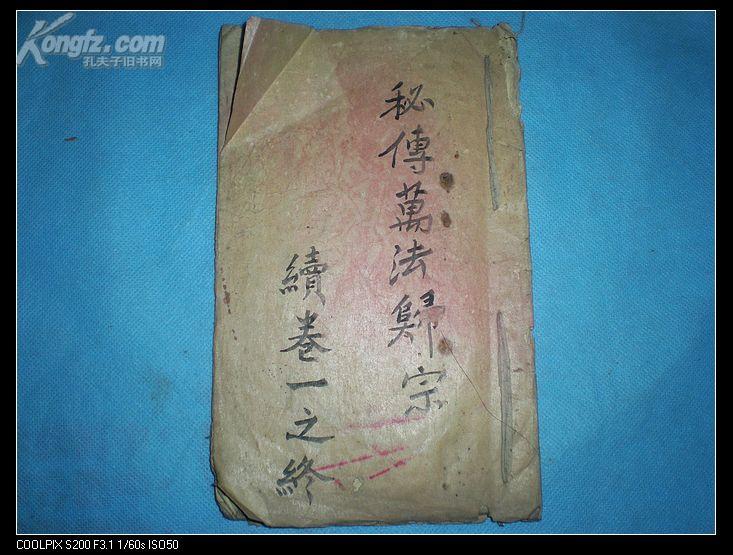 Kongfz.com
孔夫子旧书网
秘傳萬法歸宗
續卷一之終
COOLPIX S200 F3.1 1/60s ISO50